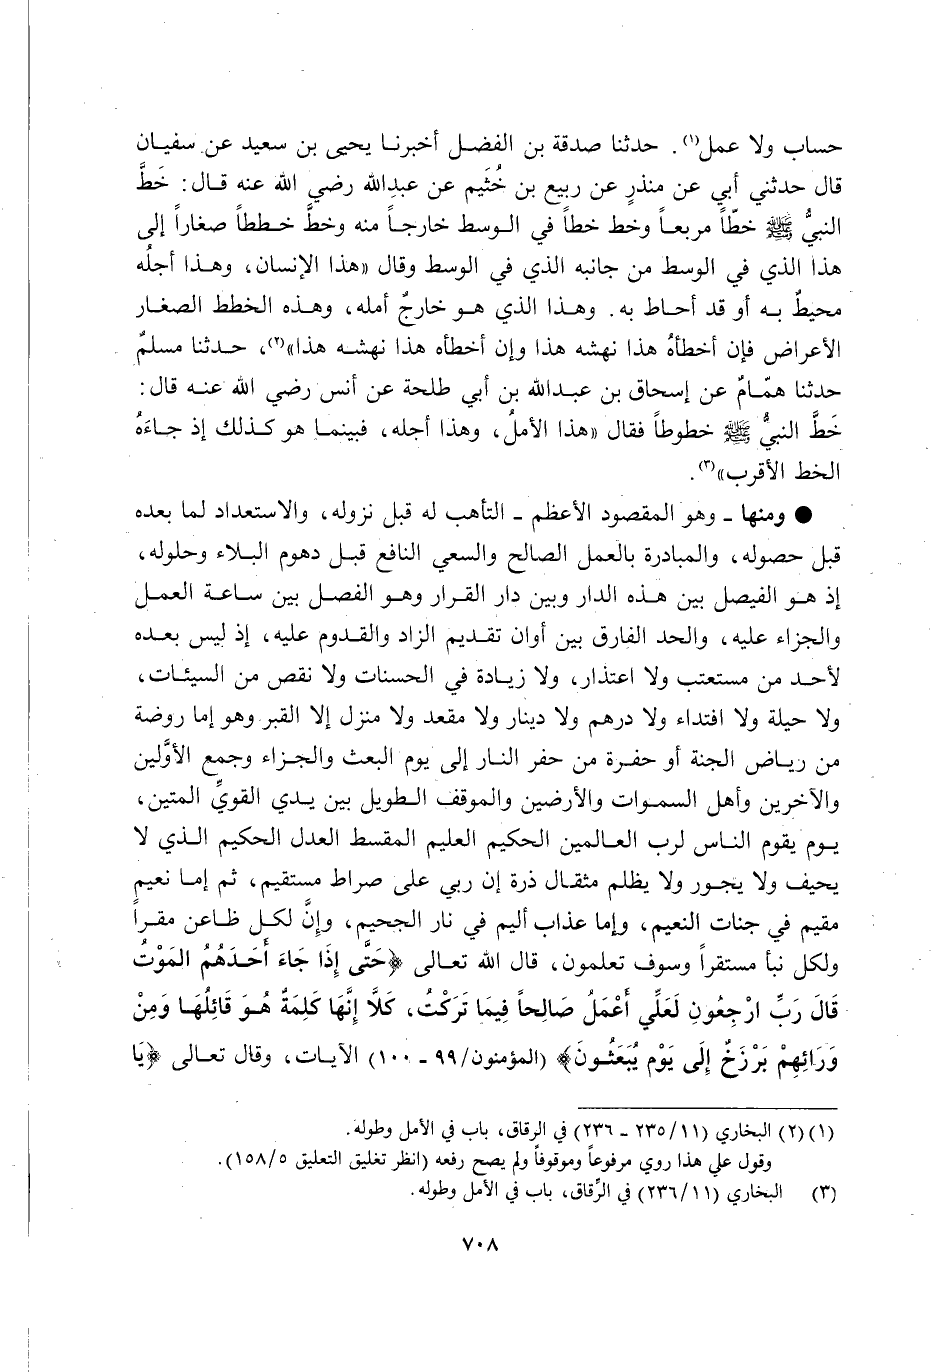 حساب ولا عمل»(١). حدثنا صدقة بن الفضل أخبرنا يحيى بن سعيد عن سفيان
قال حدثني أبي عن منذرٍ عن ربيع بن خُثَيم عن عبدالله رضي الله عنه قال: خَطَّ
النبيُّ ﷺ خطّاً مربعاً وخط خطاً في الوسط خارجاً منه وخطَّ خططاً صغاراً إلى
هذا الذي في الوسط من جانبه الذي في الوسط وقال «هذا الإنسان، وهذا أجلُه
محيطٌ به أو قد أحاط به. وهذا الذي هو خارجٌ أمله، وهذه الخطط الصغار
الأعراض فإن أخطأهُ هذا نهشه هذا وإن أخطأه هذا نهشه هذا»(٢)، حدثنا مسلمٌ
حدثنا همّامٌ عن إسحاق بن عبدالله بن أبي طلحة عن أنس رضي الله عنه قال:
خَطَّ النبيُّ ﷺ خطوطاً فقال «هذا الأملُ، وهذا أجله، فبينما هو كذلك إذ جاءَهُ
الخط الأقرب»(٣).
● ومنها ـ وهو المقصود الأعظم ـ التأهب له قبل نزوله، والاستعداد لما بعده
قبل حصوله، والمبادرة بالعمل الصالح والسعي النافع قبل دهوم البلاء وحلوله،
إذ هو الفيصل بين هذه الدار وبين دار القرار وهو الفصل بين ساعة العمل
والجزاء عليه، والحد الفارق بين أوان تقديم الزاد والقدوم عليه، إذ ليس بعده
لأحد من مستعتب ولا اعتذار، ولا زيادة في الحسنات ولا نقص من السيئات،
ولا حيلة ولا افتداء ولا درهم ولا دينار ولا مقعد ولا منزل إلا القبر وهو إما روضة
من رياض الجنة أو حفرة من حفر النار إلى يوم البعث والجزاء وجمع الأوَّلين
والآخرين وأهل السموات والأرضين والموقف الطويل بين يدي القويِّ المتين،
يوم يقوم الناس لرب العالمين الحكيم العليم المقسط العدل الحكيم الذي لا
يحيف ولا يجور ولا يظلم مثقال ذرة إن ربي على صراط مستقيم، ثم إما نعيم
مقيم في جنات النعيم، وإما عذاب أليم في نار الجحيم، وإنَّ لكل ظاعن مقراً
ولكل نبأ مستقراً وسوف تعلمون، قال الله تعالى ﴿حَتَّى إِذَا جَاءَ أَحَدَهُمُ المَوْتُ
قَالَ رَبِّ ارْجِعُونِ لَعَلِّي أَعْمَلُ صَالِحاً فِيمَا تَرَكْتُ، كَلَّا إِنَّهَا كَلِمَةٌ هُوَ قَائِلُهَا وَمِنْ
وَرَائِهِمْ بَرْزَخٌ إِلَى يَوْمِ يُبَعَثُونَ﴾ (المؤمنون/٩٩ ـ ١٠٠) الآيات، وقال تعالى ﴿يَا
(١)(٢) البخاري (١١/ ٢٣٥ ـ ٢٣٦) في الرقاق، باب في الأمل وطوله.
وقول علي هذا روي مرفوعاً وموقوفاً ولم يصح رفعه (انظر تغليق التعليق ٥/ ١٥٨).
(٣) البخاري (١١/ ٢٣٦) في الرِّقاق، باب في الأمل وطوله.
٧٠٨